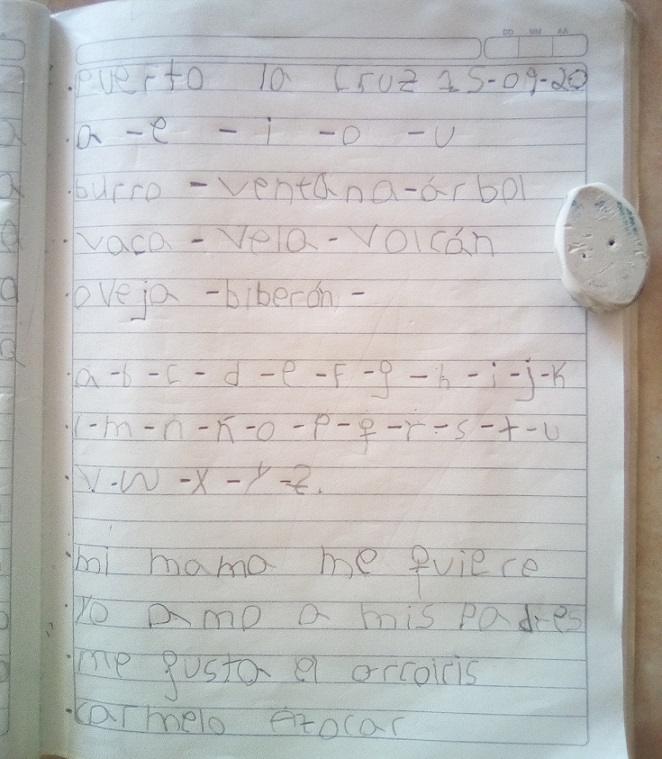 DD MM AA
Puerto la Cruz 15-09-20
a - e - i - o - u
burro - ventana - árbol
vaca - vela - volcán
oveja - biberón -
a - b - c - d - e - f - g - h - i - j - k
l - m - n - ñ - o - p - q - r - s - t - u
v - w - x - y - z.
mi mama me quiere
yo amo a mis padres
me gusta el arcoiris
carmelo Azocar